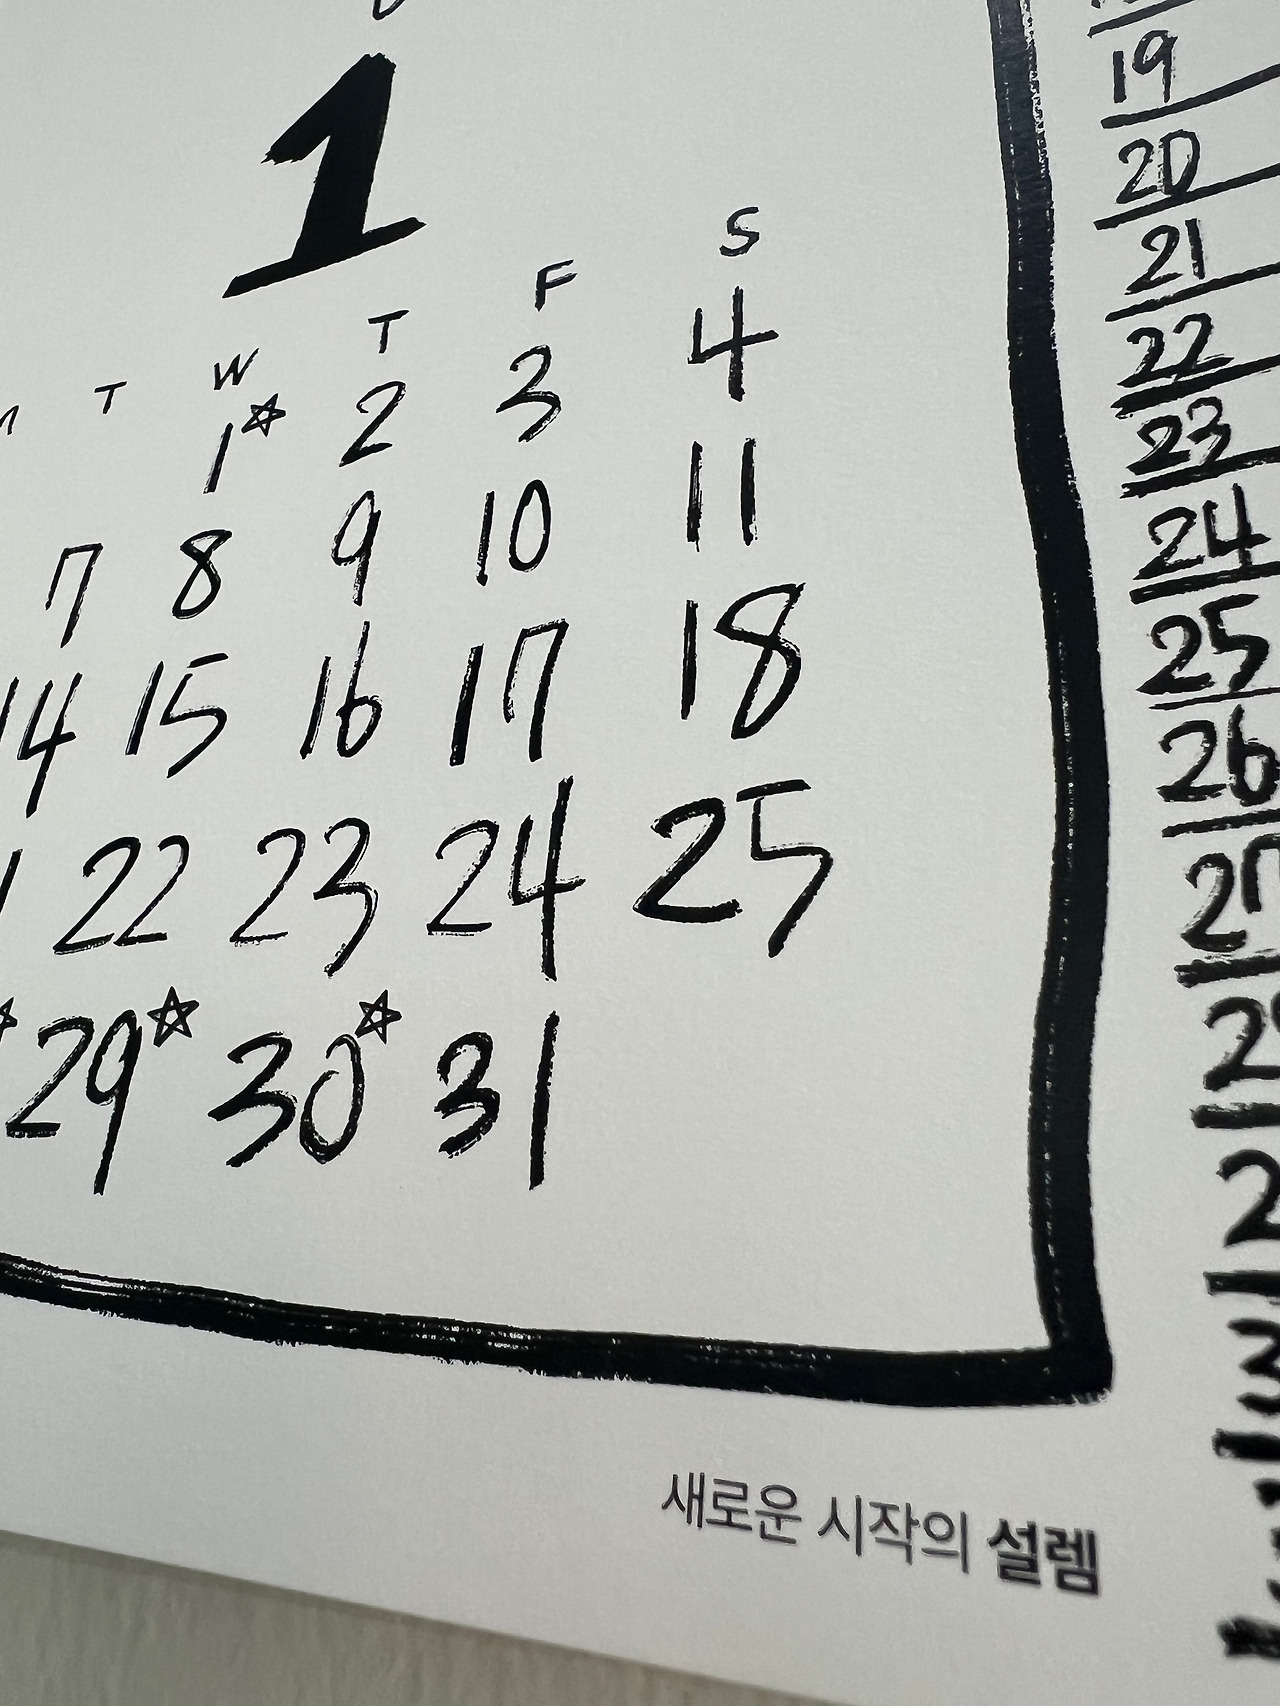 1
T W T F S
1 2 3 4
7 8 9 10 11
14 15 16 17 18
22 23 24 25
29 30 31
새로운 시작의 설렘
19
20
21
22
23
24
25
26
27